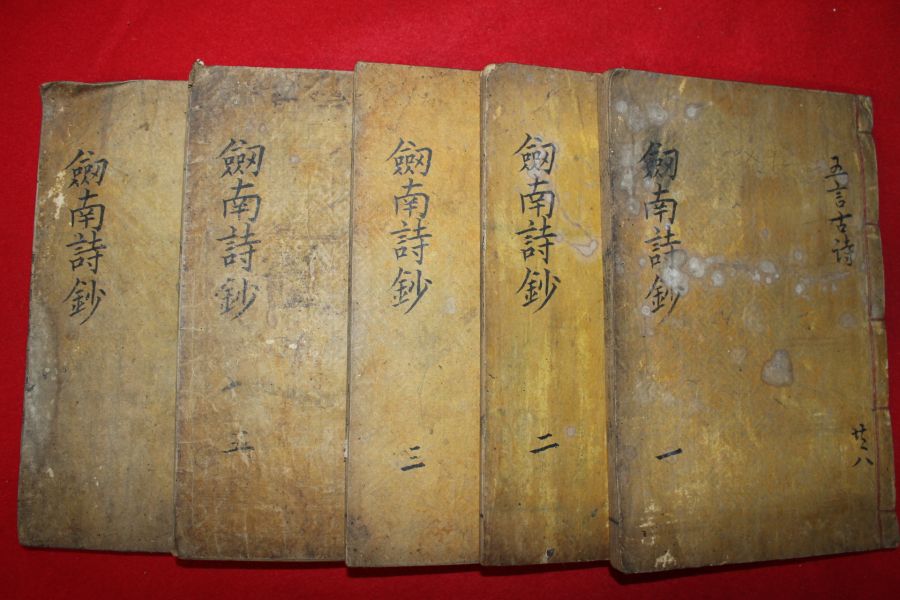 五言古詩
共八
劒南詩鈔 一
劒南詩鈔 二
劒南詩鈔 三
劒南詩鈔 五
劒南詩鈔